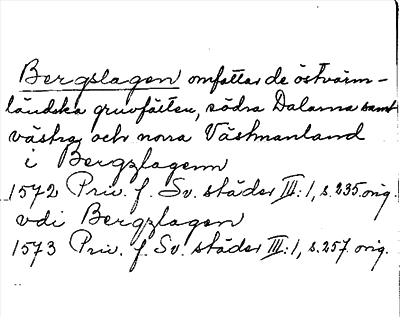 Bergslagen omfattar de östvärm-
ländska gruvfälten, södra Dalarna samt
västra och norra Västmanland
i Bergzlagenn
1572 Priv. f. Sv. städer III:1, s. 235 orig.
vdi Bergzlagen
1573 Priv. f. Sv. städer III:1, s. 257. orig.